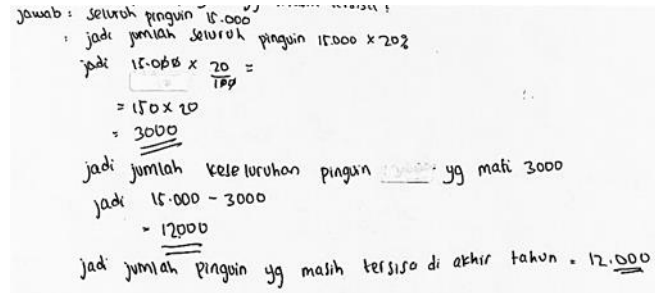 jawab : seluruh pinguin 15.000
: jadi jumlah seluruh pinguin 15.000 x 20%
jadi 15.000 x 20/100 =
= 150 x 20
= 3000
jadi jumlah keseluruhan pinguin yg mati 3000
jadi 15.000 - 3000
= 12000
jadi jumlah pinguin yg masih tersisa di akhir tahun = 12.000